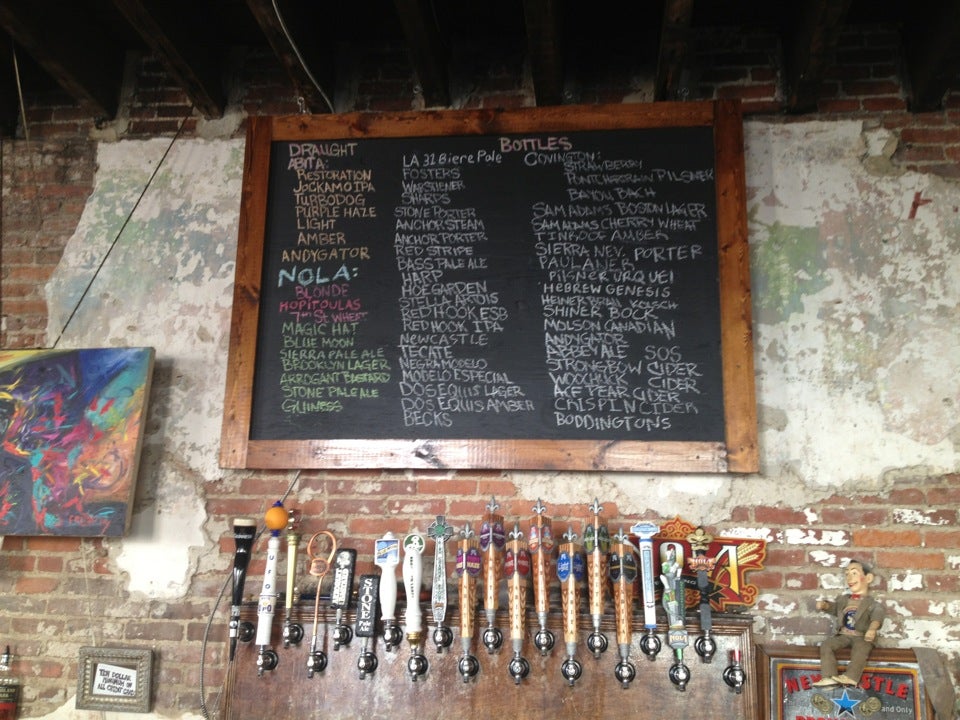 DRAUGHT
ABITA:
RESTORATION
JOCKAMO IPA
TURBODOG
PURPLE HAZE
LIGHT
AMBER
ANDYGATOR
NOLA:
BLONDE
HOPITOULAS
7TH ST WHEAT
MAGIC HAT
BLUE MOON
SIERRA PALE ALE
BROOKLYN LAGER
ARROGANT BUSTARD
STONE PALE ALE
GUINESS
BOTTLES
LA 31 Biere Pale
FOSTERS
SHARPS
STONE PORTER
ANCHOR STEAM
ANCHOR PORTER
RED STRIPE
BASS PALE ALE
HARP
HOEGARDEN
STELLA ARTOIS
RED HOOK ESB
RED HOOK IPA
NEWCASTLE
TECATE
NEGRA MODELO
MODELO ESPECIAL
DOS EQUIS LAGER
DOS EQUIS AMBER
BECKS
COVINGTON:
STRAWBERRY
PONTCHARTRAIN PILSNER
BAYOU BACH
SAM ADAMS BOSTON LAGER
SAM ADAMS CHERRY WHEAT
AMBER
SIERRA NEV. PORTER
PAULANER
PILSNER URQUEL
HEBREW GENESIS
KOLSCH
SHINER BOCK
MOLSON CANADIAN
ANDYGATOR
ABBEY ALE SOS
STRONGBOW CIDER
WOODCHUCK CIDER
ACE PEAR CIDER
CRISPIN CIDER
BODDINGTONS
STONE
Pale Ale
HAZE
Light
NOLA
NOLA
TEN DOLLAR
MINIMUM ON
ALL CREDIT CARDS
NEWCASTLE
and Only